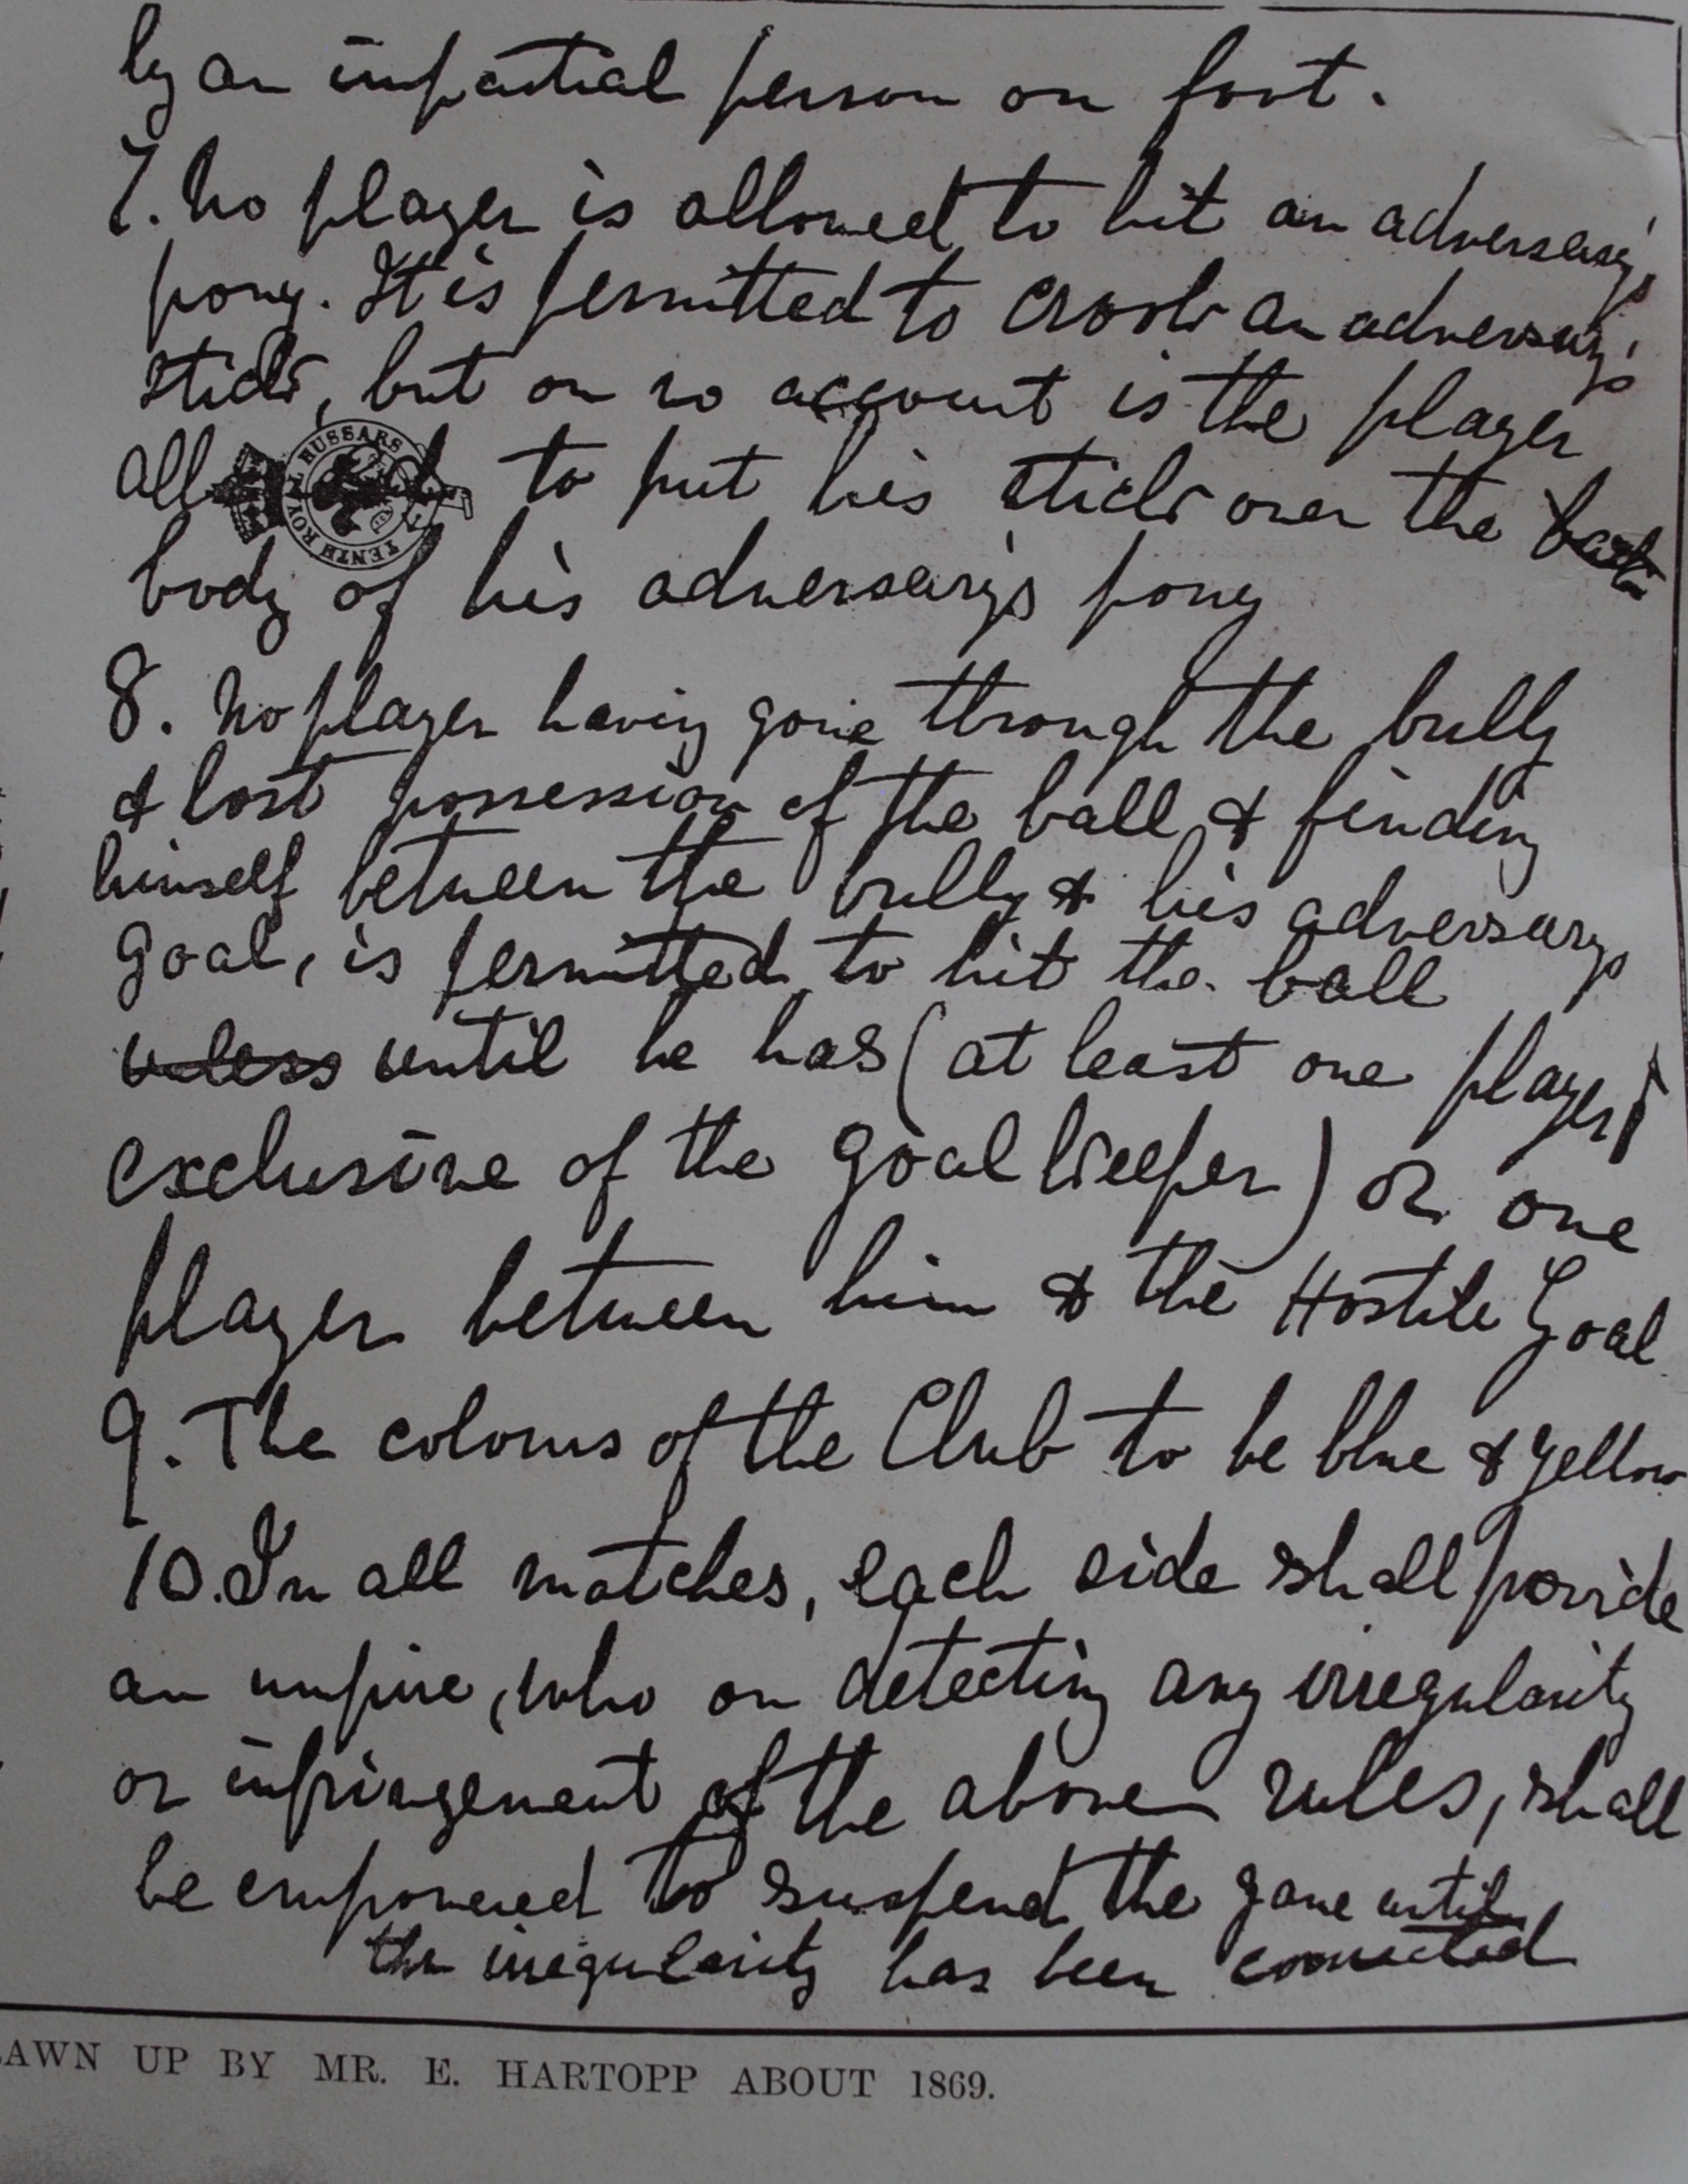 by an impartial person on foot.
7. No player is allowed to hit an adversary's
pony. It is permitted to crook an adversary's
stick, but on no account is the player
all d to put his stick over the
body of his adversary's pony
8. No player having gone through the bully
& lost possession of the ball & finding
himself between the bully & his adversarys
goal, is permitted to hit the ball
uless until he has (at least one player
exclusive of the goal keeper) or one
player between him & the Hostile Goal
9. The colours of the Club to be blue & yellow
10. In all matches, each side shall provide
an umpire, who on detecting any irregularity
or infringement of the above rules, shall
be empowered to suspend the game until
the irregularity has been corrected
TENTH ROYAL HUSSARS
AWN UP BY MR. E. HARTOPP ABOUT 1869.